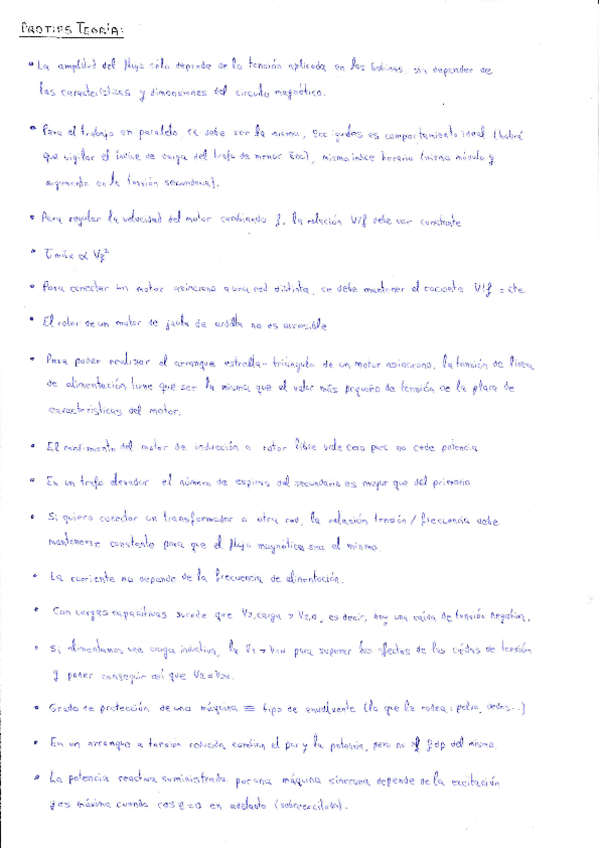 PROTIPS TEORÍA:
• La amplitud del flujo sólo depende de la tensión aplicada en las bobinas, sin depender de
las características y dimensiones del circuito magnético.
• Para el trabajo en paralelo, rt debe ser la misma, Ecc iguales es comportamiento ideal (habrá
que vigilar el índice de carga del trafo de menor Ecc), mismo índice horario (mismo módulo y
argumento en la tensión secundaria).
• Para regular la velocidad del motor cambiando f, la relación V/f debe ser constante
• Tmáx ∝ Vf²
• Para conectar un motor asíncrono a una red distinta, se debe mantener el cociente V/f = cte
• El rotor de un motor de jaula de ardilla no es accesible
• Para poder realizar el arranque estrella-triángulo de un motor asíncrono, la tensión de línea
de alimentación tiene que ser la misma que el valor más pequeño de tensión de la placa de
características del motor.
• El rendimiento del motor de inducción a rotor libre vale cero pues no cede potencia
• En un trafo elevador el número de espiras del secundario es mayor que del primario
• Si quiero conectar un transformador a otra red, la relación tensión/frecuencia debe
mantenerse constante para que el flujo magnético sea el mismo.
• La corriente no depende de la frecuencia de alimentación.
• Con cargas capacitivas sucede que V2,carga > V2,0, es decir, hay una caída de tensión negativa.
• Si alimentamos una carga inductiva, la V1 > V1N para superar los efectos de las caídas de tensión
y poder conseguir así que V2 = V2N.
• Grado de protección de una máquina ≡ tipo de envolvente (lo que le rodea: polvo, dedos...)
• En un arranque a tensión reducida cambia el par y la potencia, pero no el fdp del mismo.
• La potencia reactiva suministrada por una máquina síncrona depende de la excitación
y es máxima cuando cos φ = 0 en adelanto (sobreexcitada).